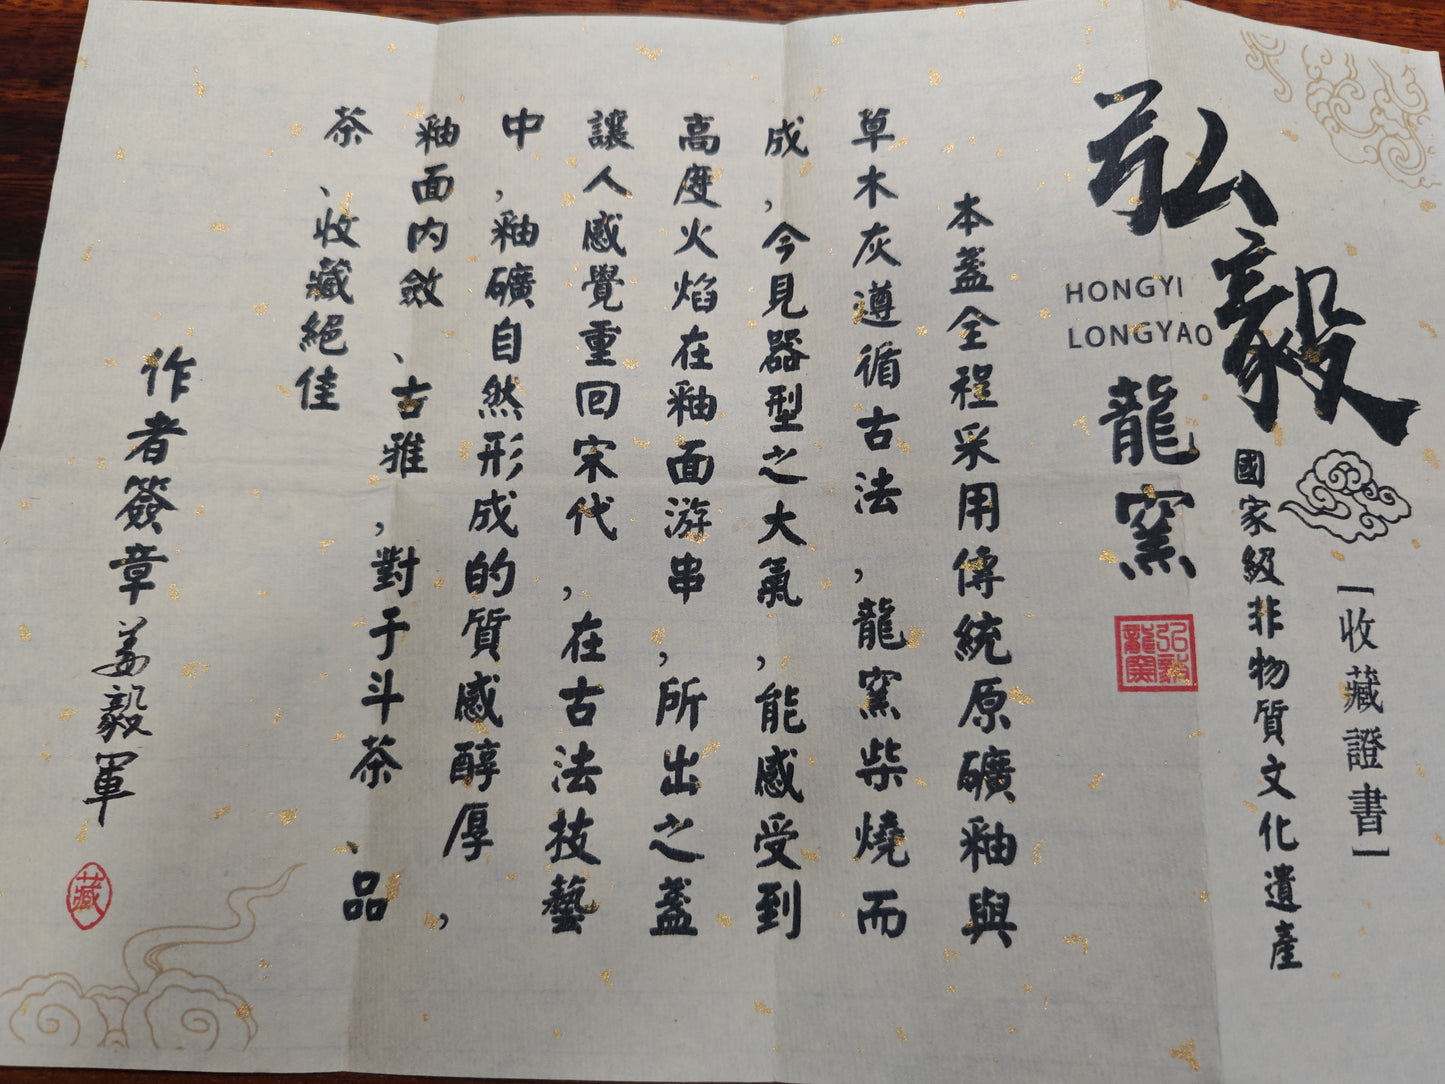 [收藏證書]
國家級非物質文化遺產
弘毅
HONGYI
LONGYAO
龍窯
弘毅龍窯
本盞全程采用傳統原礦釉與
草木灰遵循古法，龍窯柴燒而
成，今見器型之大氣，能感受到
高度火焰在釉面游串，所出之盞
讓人感覺重回宋代，在古法技藝
中，釉礦自然形成的質感醇厚，
釉面内斂、古雅，對于斗茶、品
茶、收藏絕佳
作者簽章 姜毅軍
藏